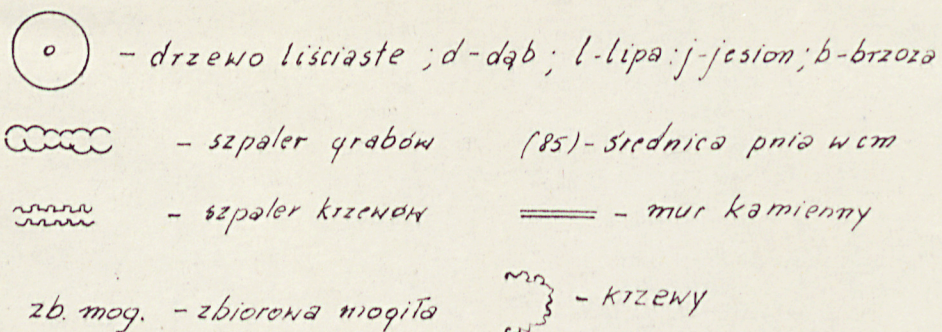 - drzewo liściaste ; d-dąb ; l-lipa : j-jesion ; b-brzoza
- szpaler grabów (85) - średnica pnia w cm
- szpaler krzewów - mur kamienny
zb. mog. - zbiorowa mogiła - krzewy